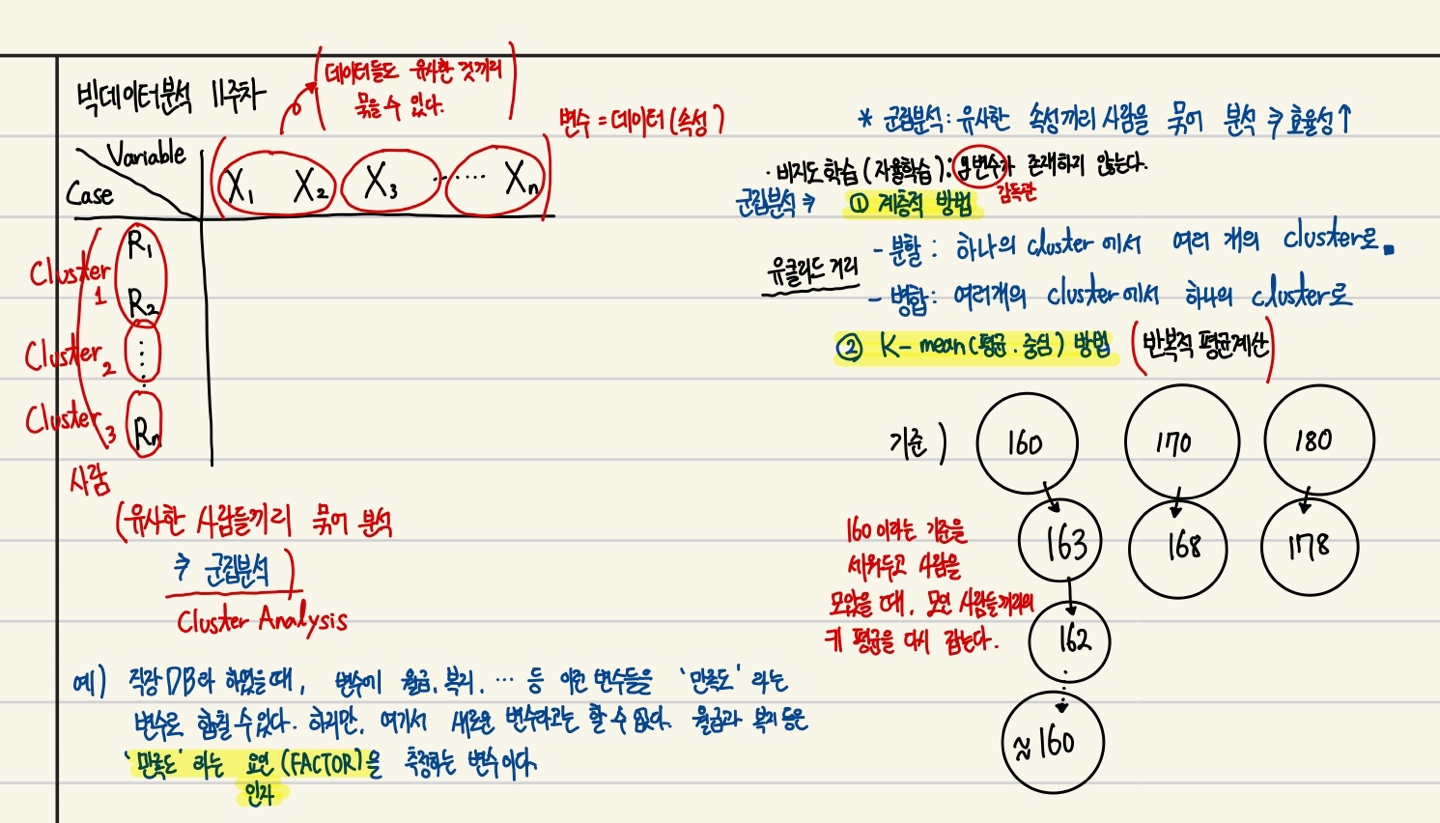 빅데이터분석 11주차
(데이터들도 유사한 것끼리
묶을 수 있다.)
변수 = 데이터 (속성)
Variable
Case
X₁ X₂ X₃ ...... Xₙ
R₁
R₂
⋮
Rₙ
Cluster 1
Cluster 2
Cluster 3
사람
(유사한 사람들끼리 묶어 분석
⇒ 군집분석)
Cluster Analysis
예) 직장 DB라 하였을 때, 변수에 월급, 복지, … 등 이런 변수들을 '만족도' 라는
변수로 합칠 수 있다. 하지만, 여기서 새로운 변수라고는 할 수 없다. 월급과 복지 등은
'만족도' 라는 요인 (FACTOR)을 측정하는 변수이다.
인자
* 군집분석: 유사한 속성끼리 사람을 묶어 분석 ⇒ 효율성↑
· 비지도 학습 (자율학습): 종변수가 존재하지 않는다.
감독관
군집분석 ⇒ ① 계층적 방법
- 분할 : 하나의 cluster에서 여러 개의 cluster로.
유클리드 거리
- 병합: 여러개의 cluster에서 하나의 cluster로
② K-mean(평균.중심) 방법 (반복적 평균계산)
기준) 160 170 180
163 168 178
162
≈160
160 이라는 기준을
세워두고 사람을
모았을 때, 모인 사람들끼리의
키 평균을 다시 잡는다.